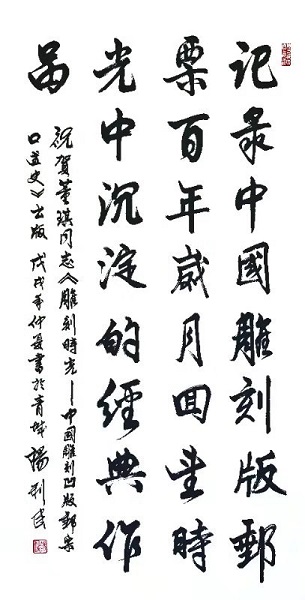 记录中國雕刻版郵
票百年歲月回望時
光中沉淀的經典作
品
祝贺董琪同志《雕刻時光——中國雕刻凹版郵票
口述史》出版 戊戌年仲夏書於青城 楊利民